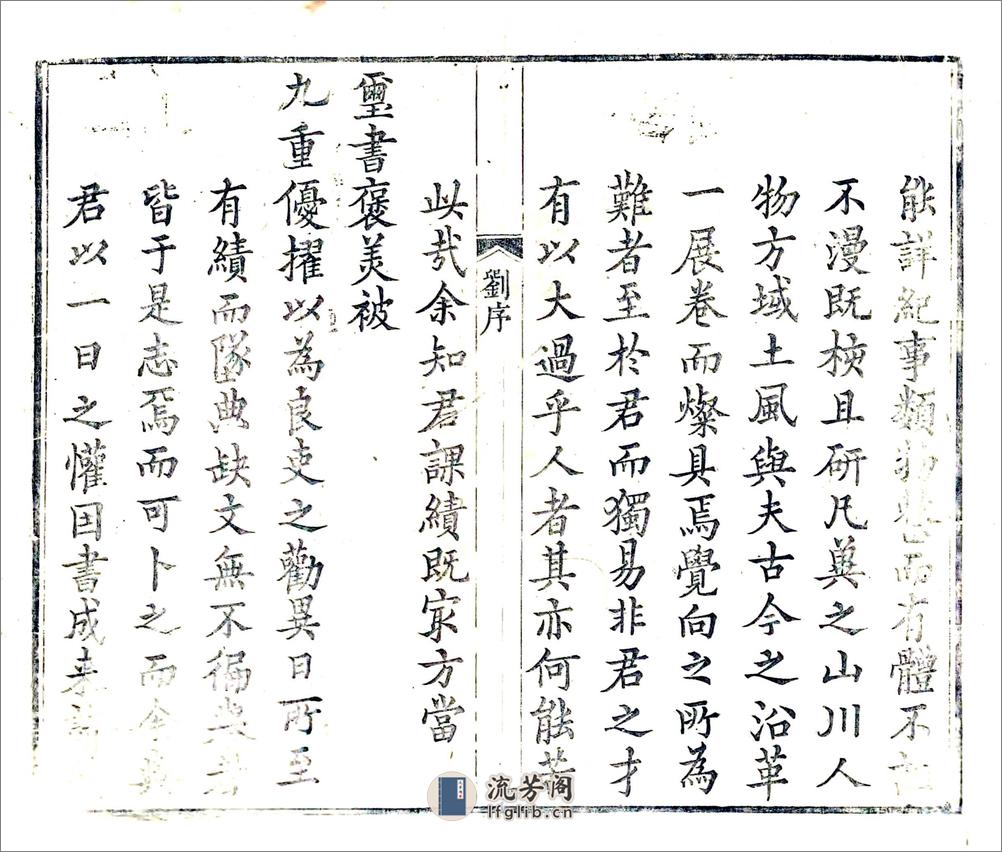 能詳紀事類物悉而有體不
不漫既核且研凡冀之山川人
物方域土風與夫古今之沿革
一展卷而燦具焉覺向之所為
難者至於君而獨易非君之才
有以大過乎人者其亦何能若
劉序
此哉余知君課績既寂方當
璽書褒美被
九重優擢以為良吏之勸異日所至
有績而墜典缺文無不徧
皆于是志焉而可卜之而余
君以一日之懽因書成來
流芳阁
lfglib.cn